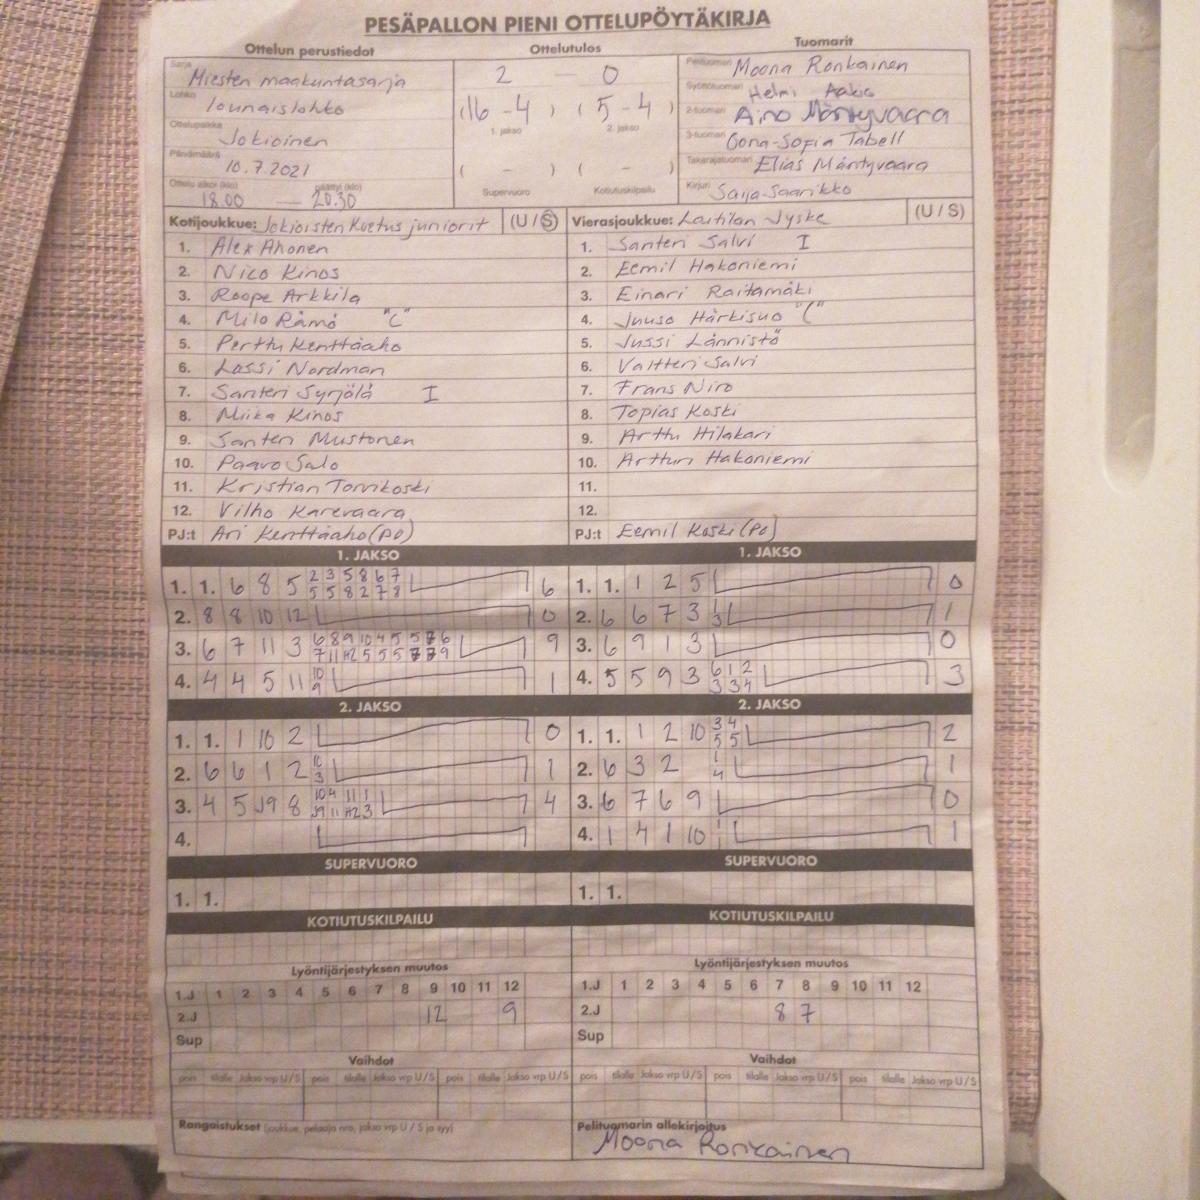 PESÄPALLON PIENI OTTELUPÖYTÄKIRJA
Ottelun perustiedot
Ottelutulos
Tuomarit
Sarja Miesten maakuntasarja
Lohko lounaislohko
Ottelupaikka Jokioinen
Päivämäärä 10.7.2021
Ottelu alkoi (klo) päättyi (klo)
18.00 — 20.30
2 — 0
(16 - 4) (5 - 4)
1. jakso 2. jakso
( - ) ( - )
Supervuoro Kotiutuskilpailu
Pelituomari Moona Ronkainen
Syöttötuomari Helmi Aakio
2-tuomari Aino Mäntyvaara
3-tuomari Oona-Sofia Tabell
Takarajatuomari Elias Mäntyvaara
Kirjuri Saija Saarikko
Kotijoukkue: Jokioisten Koetus juniorit (U / S)
1. Alex Ahonen
2. Nico Kinos
3. Roope Arkkila
4. Milo Rämö "C"
5. Perttu Kenttäaho
6. Lassi Nordman
7. Santeri Syrjälä I
8. Miika Kinos
9. Santeri Mustonen
10. Paavo Salo
11. Kristian Torvikoski
12. Vilho Karevaara
PJ:t Ari Kenttäaho (PO)
Vierasjoukkue: Laitilan Jyske (U / S)
1. Santeri Salvi I
2. Eemil Hakoniemi
3. Einari Raitamäki
4. Juuso Härkisuo "C"
5. Jussi Lännistö
6. Valtteri Salvi
7. Frans Niro
8. Topias Koski
9. Arttu Hilakari
10. Artturi Hakoniemi
11.
12.
PJ:t Eemil Koski (PO)
1. JAKSO
1. 1. 6 8 5 2 3 5 8 6 7 6
5 5 8 2 7 8
2. 8 8 10 12 0
3. 6 7 11 3 9
4. 4 4 5 11 10 1
9
1. JAKSO
1. 1. 1 2 5 0
2. 6 6 7 3 1 1
3
3. 6 9 1 3 0
4. 5 5 9 3 6 1 2 3
3 3 4
2. JAKSO
1. 1. 1 10 2 0
2. 6 6 1 2 1
3
3. 4 5 J9 8 10 4 11 1 4
4.
2. JAKSO
1. 1. 1 2 10 3 4 2
5 5
2. 6 3 2 1 1
4
3. 6 7 6 9 0
4. 1 4 1 10 1
SUPERVUORO
1. 1.
SUPERVUORO
1. 1.
KOTIUTUSKILPAILU
KOTIUTUSKILPAILU
Lyöntijärjestyksen muutos
1.J 1 2 3 4 5 6 7 8 9 10 11 12
2.J 12 9
Sup
Lyöntijärjestyksen muutos
1.J 1 2 3 4 5 6 7 8 9 10 11 12
2.J 8 7
Sup
Vaihdot
pois tilalle Jakso vrp U / S pois tilalle Jakso vrp U / S pois tilalle Jakso vrp U / S
Vaihdot
pois tilalle Jakso vrp U / S pois tilalle Jakso vrp U / S pois tilalle Jakso vrp U / S
Rangaistukset (joukkue, pelaaja nro, jakso vrp U / S ja syy)
Pelituomarin allekirjoitus
Moona Ronkainen